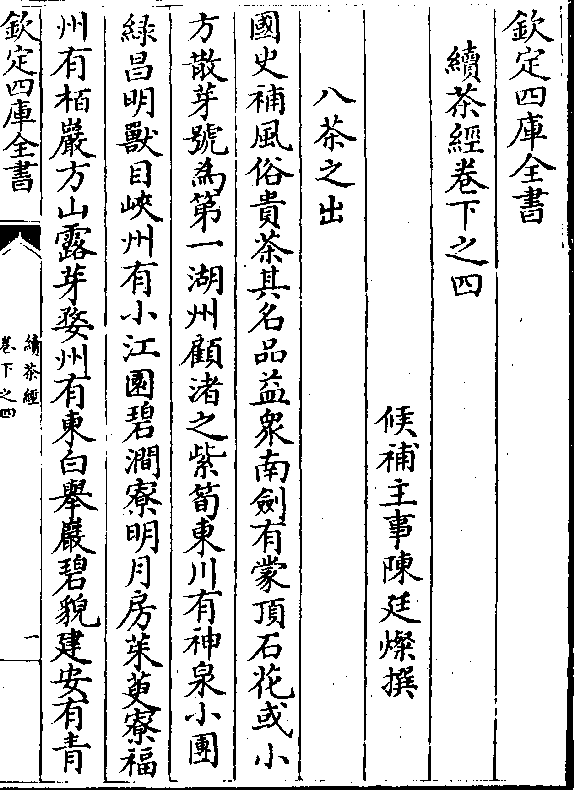 欽定四庫全書
續茶經卷下之四
候補主事陳廷燦撰
八茶之出
國史補風俗貴茶其名品益衆南劍有蒙頂石花或小
方散芽號為第一湖州顧渚之紫筍東川有神泉小團
緑昌明獸目峽州有小江園碧澗寮明月房茱萸寮福
州有栢巖方山露芽婺州有東白舉巖碧貌建安有青
欽定四庫全書
續茶經
卷下之四
一